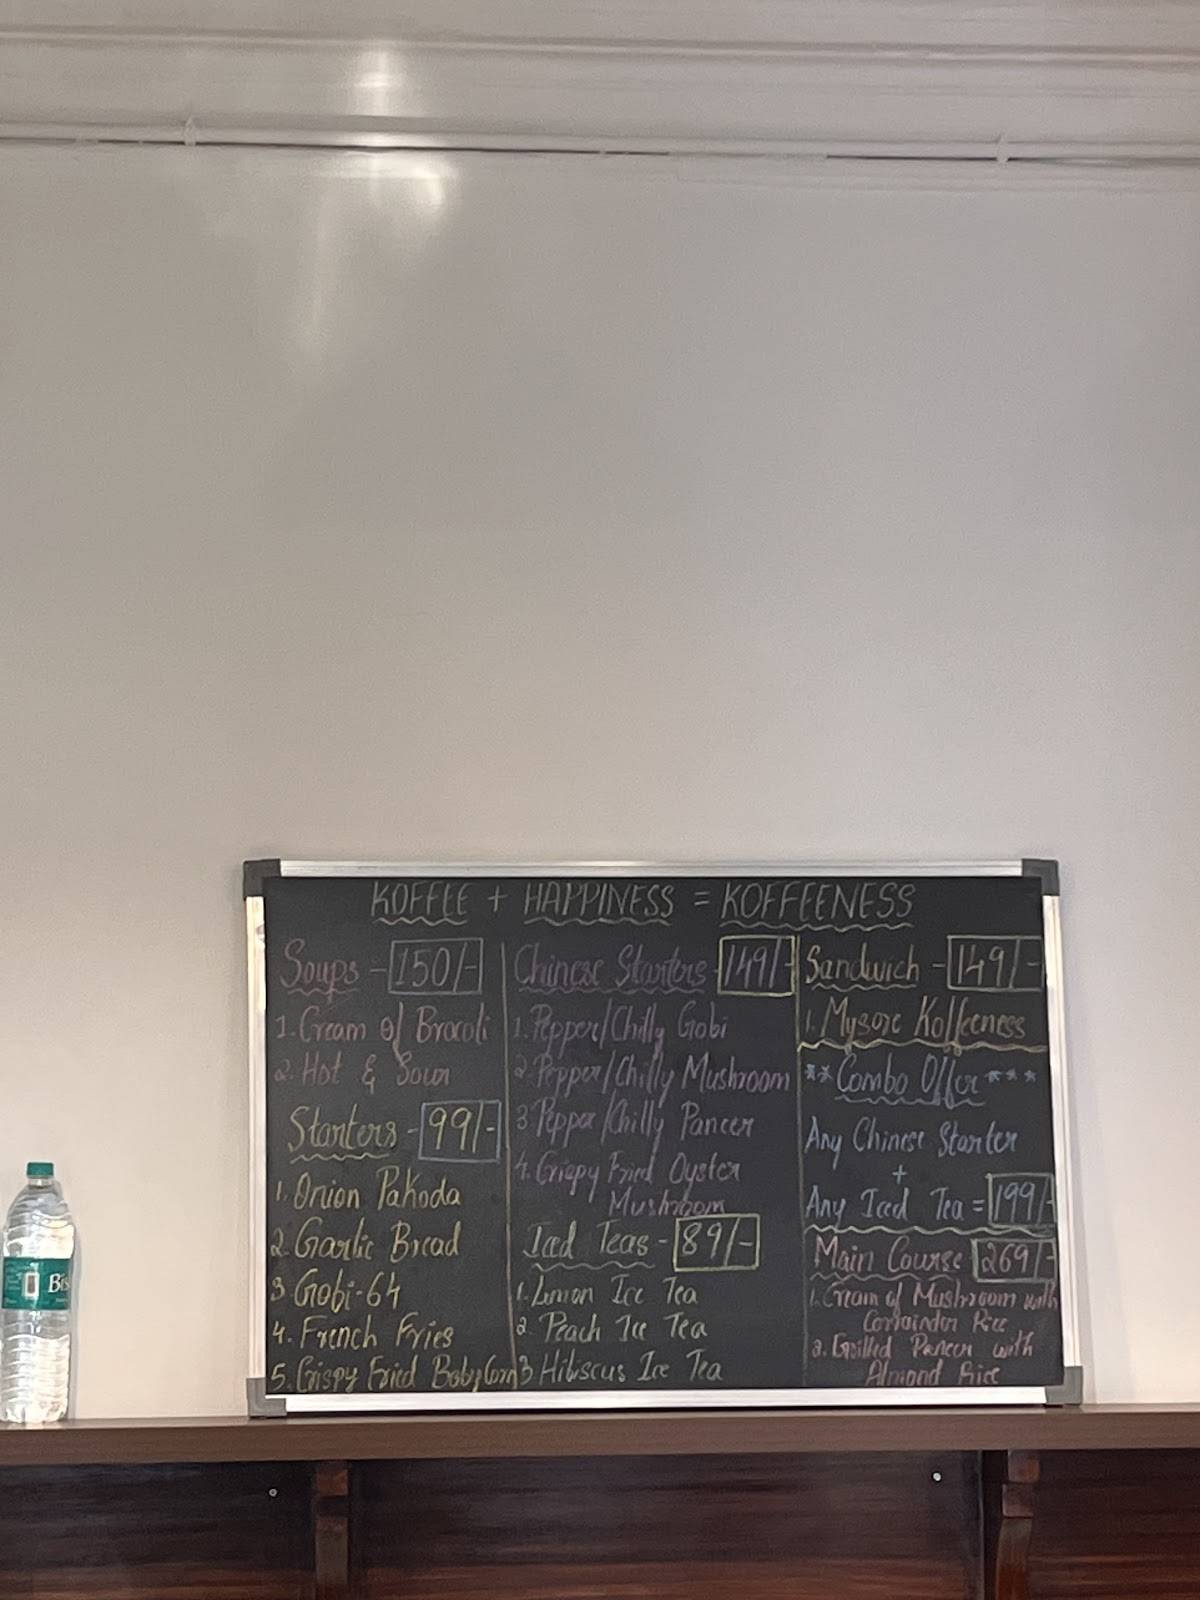 KOFFEE + HAPPINESS = KOFFEENESS
Soups - 150/-
1. Cream of Brocoli
2. Hot & Sour
Starters - 99/-
1. Onion Pakoda
2. Garlic Bread
3 Gobi-64
4. French Fries
5. Crispy Fried Baby Corn
Chinese Starters - 149/-
1. Pepper/Chilly Gobi
2. Pepper/Chilly Mushroom
3 Pepper/Chilly Paneer
4. Crispy Fried Oyster
Mushroom
Iced Teas - 89/-
1. Lemon Ice Tea
2 Peach Ice Tea
3 Hibiscus Ice Tea
Sandwich - 149/-
1. Mysore Koffeeness
** Combo Offer ***
Any Chinese Starter
+
Any Iced Tea = 199/-
Main Course 269/-
1. Cream of Mushroom with
Corriander Rice
2. Grilled Paneer with
Almond Rice
Bis